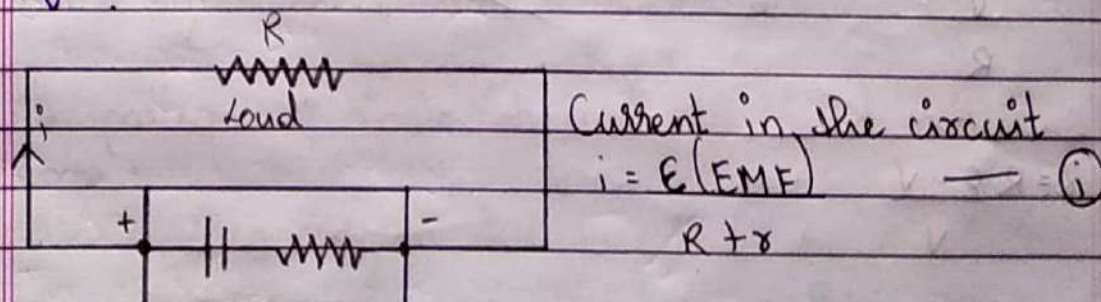 R
Loud
i
Current in the circuit
i = ε(EMF) — (i)
R + r
+
-